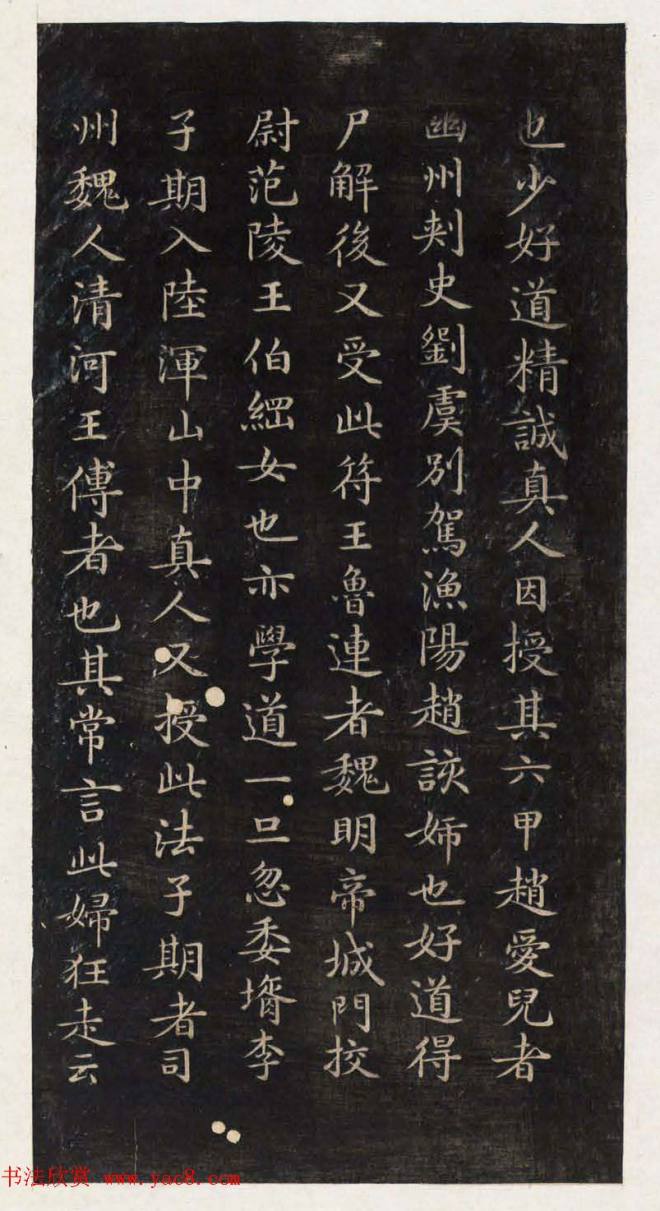 也少好道精誠真人因授其六甲趙愛兒者
幽州刾史劉虞別駕漁陽趙該姊也好道得
尸解後又受此符王魯連者魏明帝城門挍
尉范陵王伯綱女也亦學道一旦忽委壻李
子期入陸渾山中真人又授此法子期者司
州魏人清河王傅者也其常言此婦狂走云
书法欣赏 www.yac8.com